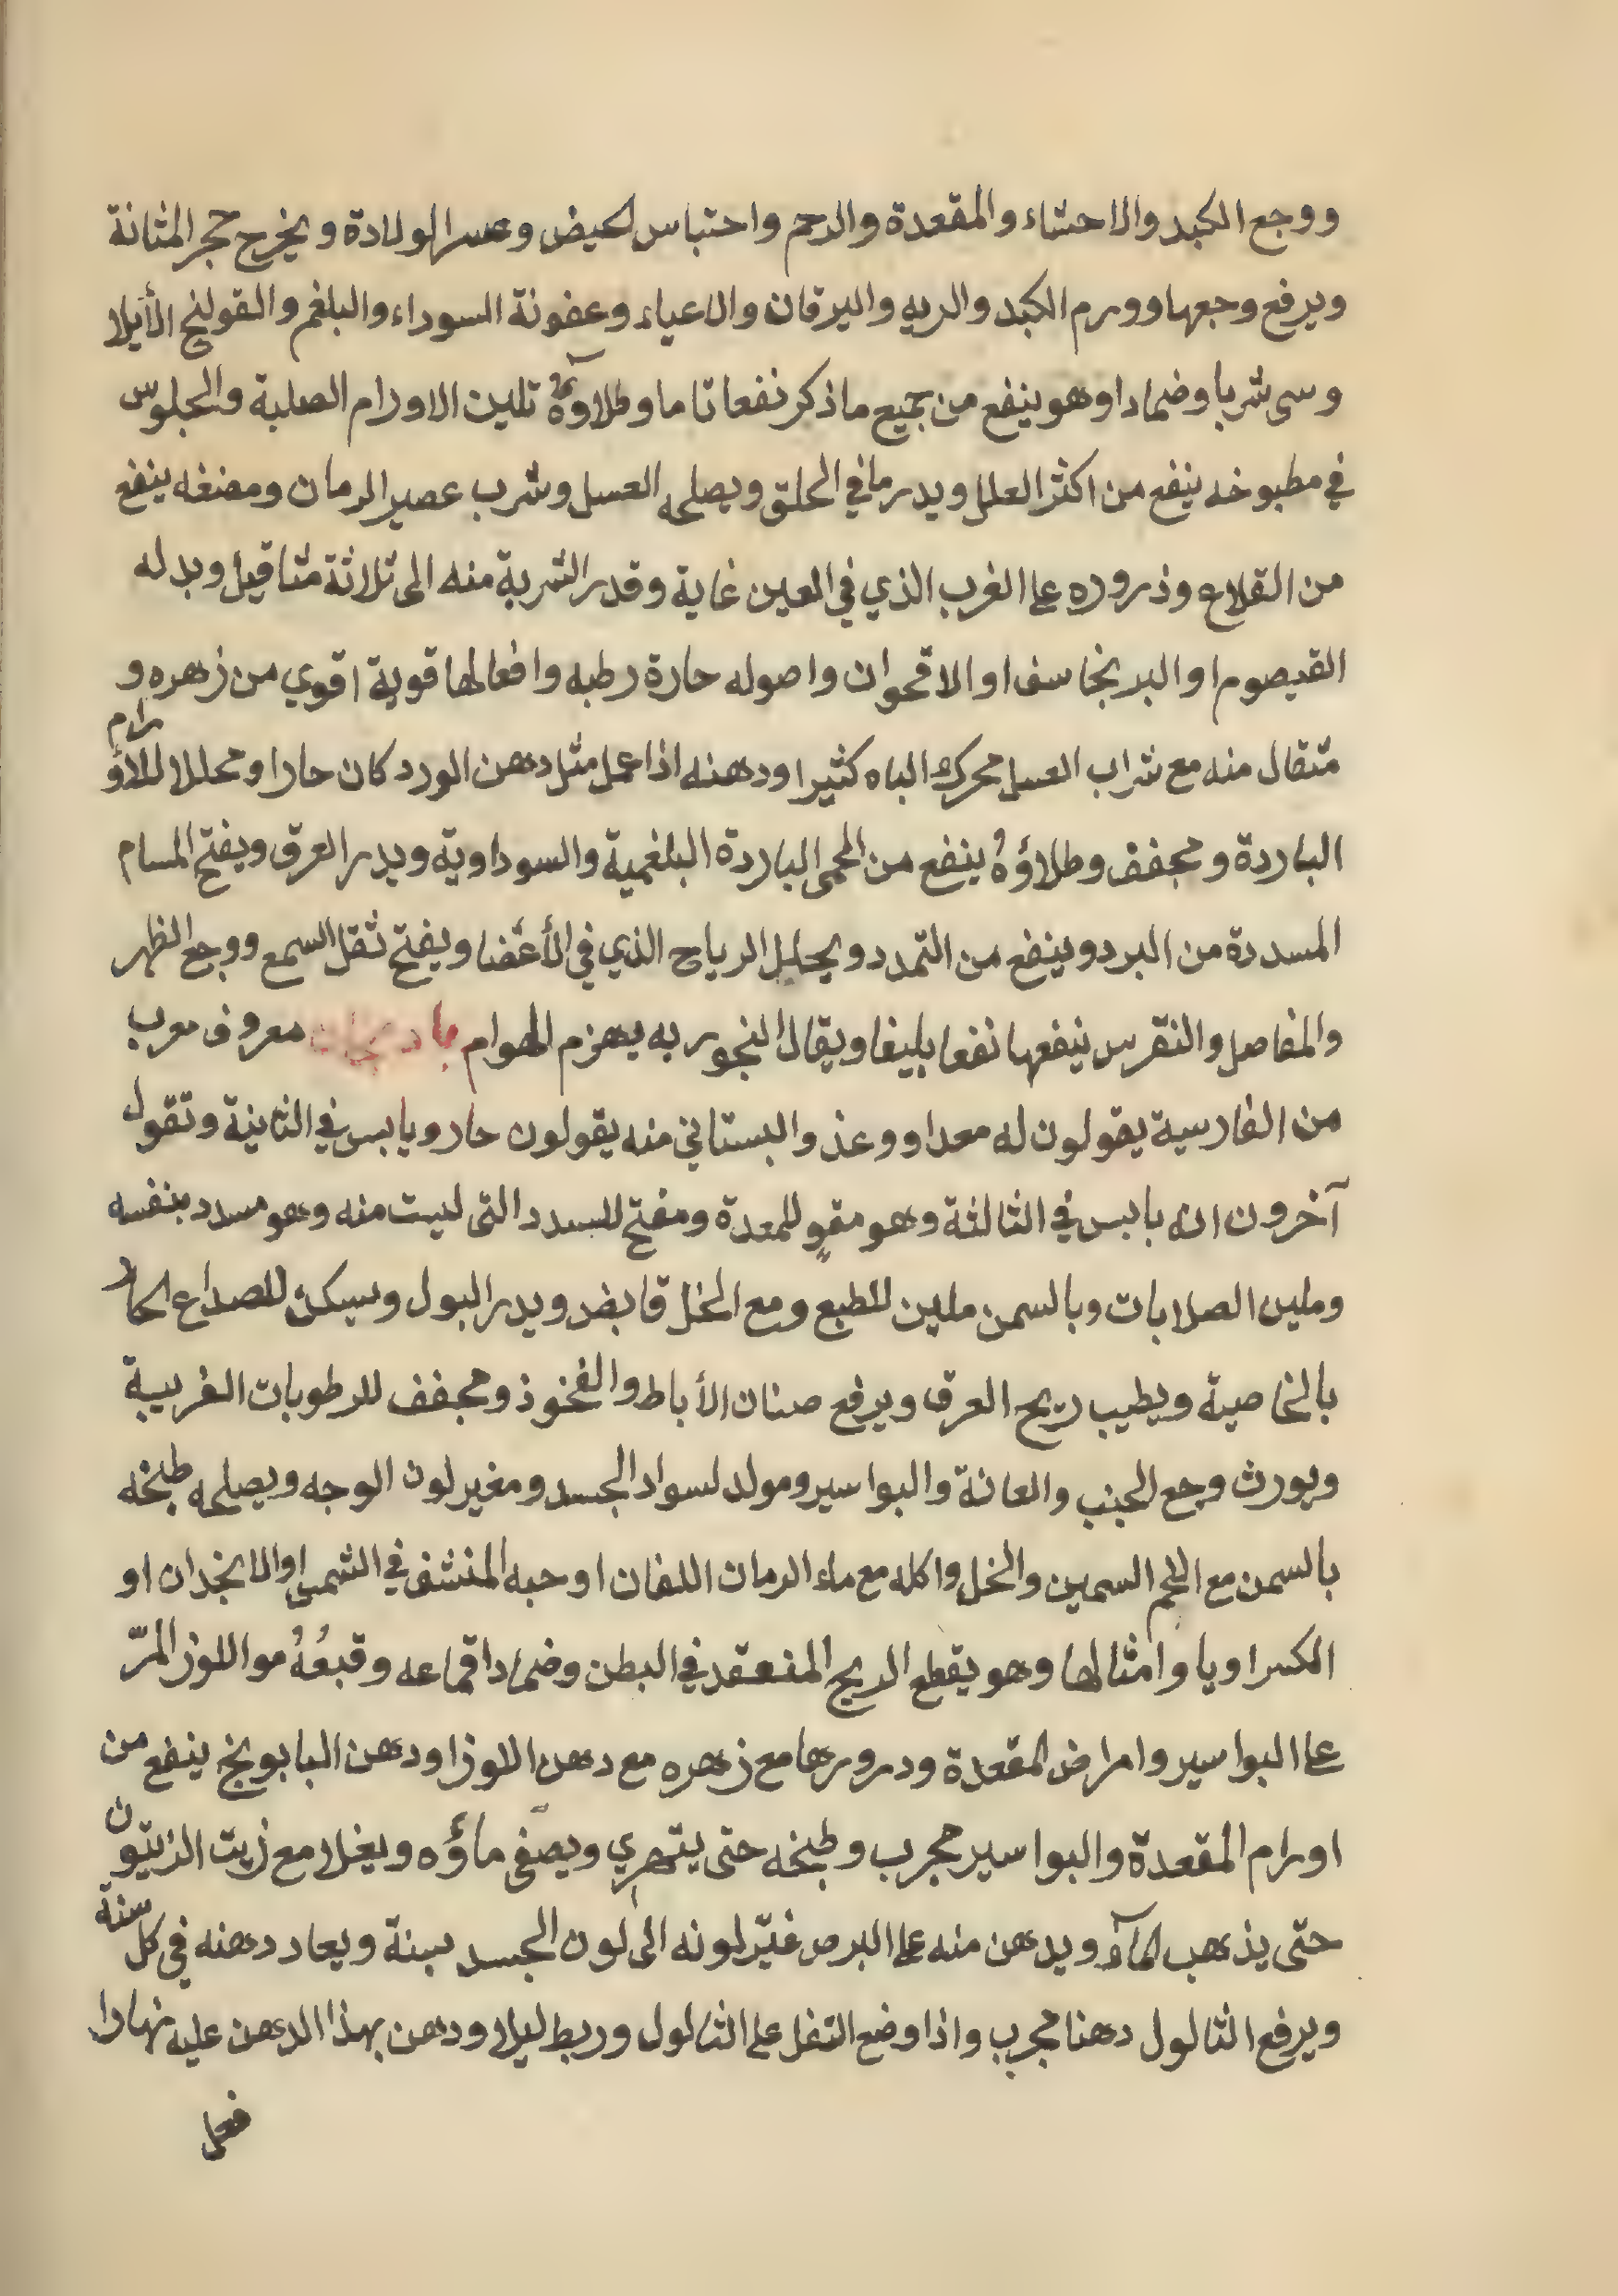 ووجع الكبد والاحشاء والمقعدة والرحم واحتباس الحيض وعسر الولادة ويخرج حجر المثانة
ويرفع وجعها وورم الكبد والريه واليرقان والاعياء وعفونة السوداء والبلغم والقولنج الأيلا
وسى شربا وضمادا وهو ينفع من جميع ما ذكر نفعا تاما وطلاؤه تلين الاورام الصلبة والجلوس
في مطبوخه ينفع من اكثر العلل ويدر ما في الحلق ويصلحه العسل وشرب عصير الرمان ومضغه ينفع
من القلاع وذروره علا الغرب الذي في العين غاية وقدر الشربة منه الى ثلاثة مثاقيل وبدله
القيصوم او البرنجاسف او الاقحوان واصوله حارة رطبه وافعالها قوية اقوي من زهره و
مثقال منه مع شراب العسل محرك الباه كثيرا ودهنه اذا عمل مثل دهن الورد كان حارا ومحللا للاورام
الباردة ومجفف وطلاؤهُ ينفع من الحمى الباردة البلغمية والسوداوية ويدر العرق ويفتح المسام
المسددة من البرد وينفع من التمدد ويحلل الرياح الذي في الأعضا ويفتح ثقل السمع ووجع الظهر
والمفاصل والنقرس ينفعها نفعا بليغا ويقال البخور به يهزم الهوام بادنجان معروف معرب
من الفارسية يقولون له معدا ووغذ والبستاني منه يقولون حار ويابس في الثانية وتقول
آخرون انه يابس في الثالثة وهو مقوٍ للمعدة ومفتح للسدد التى ليست منه وهو مسدد بنفسه
وملين الصلابات وبالسمن ملين للطبع ومع الخل قابض ويدر البول ويسكن للصداع الحار
بالخاصية ويطيب ريح العرق ويرفع صنان الأباط والفخوذ ومجفف للرطوبات الغريبة
ويورث وجع الجنب والعانة والبواسير ومولد لسواد الجسد ومغير لون الوجه ويصلحه طبخه
بالسمن مع اللحم السمين والخل واكله مع ماء الرمان اللفان او حبه المنشف في الشمس او الانجدان او
الكراويا وامثالها وهو يقطع الريح المنعقد في البطن وضماد اقماعه وقبعُهُ مو اللوز المرّ
علا البواسير وامراض المقعدة ودرورها مع زهره مع دهن اللوز او دهن البابونج ينفع من
اورام المقعدة والبواسير مجرب وطبخه حتى يتهري ويصفى ماؤه ويغلا مع زيت الزيتون
حتى يذهب المآء ويدهن منه علا البرص غيّر لونه الى لون الجسد سنة ويعاد دهنه في كل سنة
ويرفع الثالول دهنا مجرب واذا وضع التفل على الثالول وربط ليلا ودهن بهذا الدهن عليه نهارا
فعل